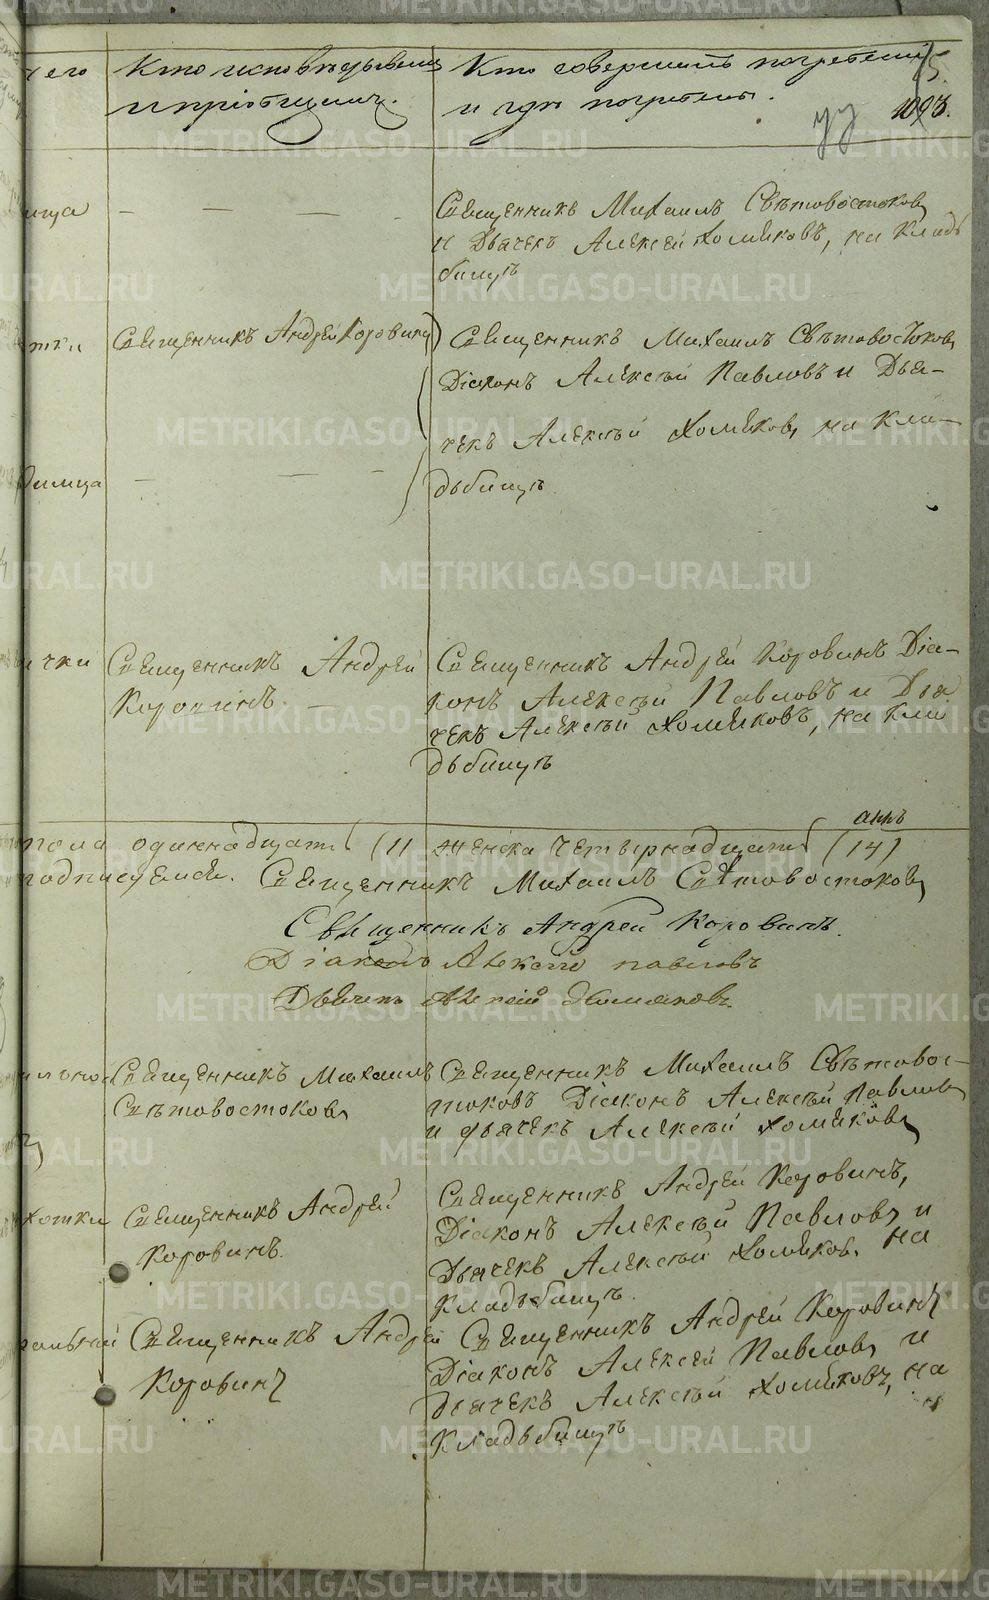 чего Кто исповѣдывалъ Кто совершалъ погребеніе
и пріобщалъ. и гдѣ погребены.
103.
ица Священникъ Михаилъ Свѣтовостоковъ
и Дьячекъ Алексѣй Хомяковъ, на клад
бищѣ
Священникъ Андрей Коровинъ Священникъ Михаилъ Свѣтовостоковъ
Діаконъ Алексѣй Павловъ и Дья-
чекъ Алексѣй Хомяковъ, на кла-
димца дьбищѣ
чки Священникъ Андрей Священникъ Андрей Коровинъ Діа-
Коровинъ. конъ Алексѣй Павловъ и Дья
чекъ Алексѣй Хомяковъ, на кла
дьбищѣ
пола одиннадцать (11 женска четырнадцать (14)
подписуемся. Священникъ Михаилъ Свѣтовостоковъ
Священникъ Андрей Коровинъ.
Діаконъ Алексѣй Павловъ
Дьячекъ Алексѣй Хомяковъ
Священникъ Михаилъ Священникъ Михаилъ Свѣтовос-
Свѣтовостоковъ токовъ Діаконъ Алексѣй Павловъ
и дьячекъ Алексѣй Хомяковъ
хотки Священникъ Андрей Священникъ Андрей Коровинъ,
Коровинъ. Діаконъ Алексѣй Павловъ и
Дьячекъ Алексѣй Хомяковъ, на
кладьбищѣ.
Священникъ Андрей Священникъ Андрей Коровинъ
Коровинъ Діаконъ Алексѣй Павловъ и
дьячекъ Алексѣй Хомяковъ, на
кладьбищѣ
METRIKI.GASO-URAL.RU